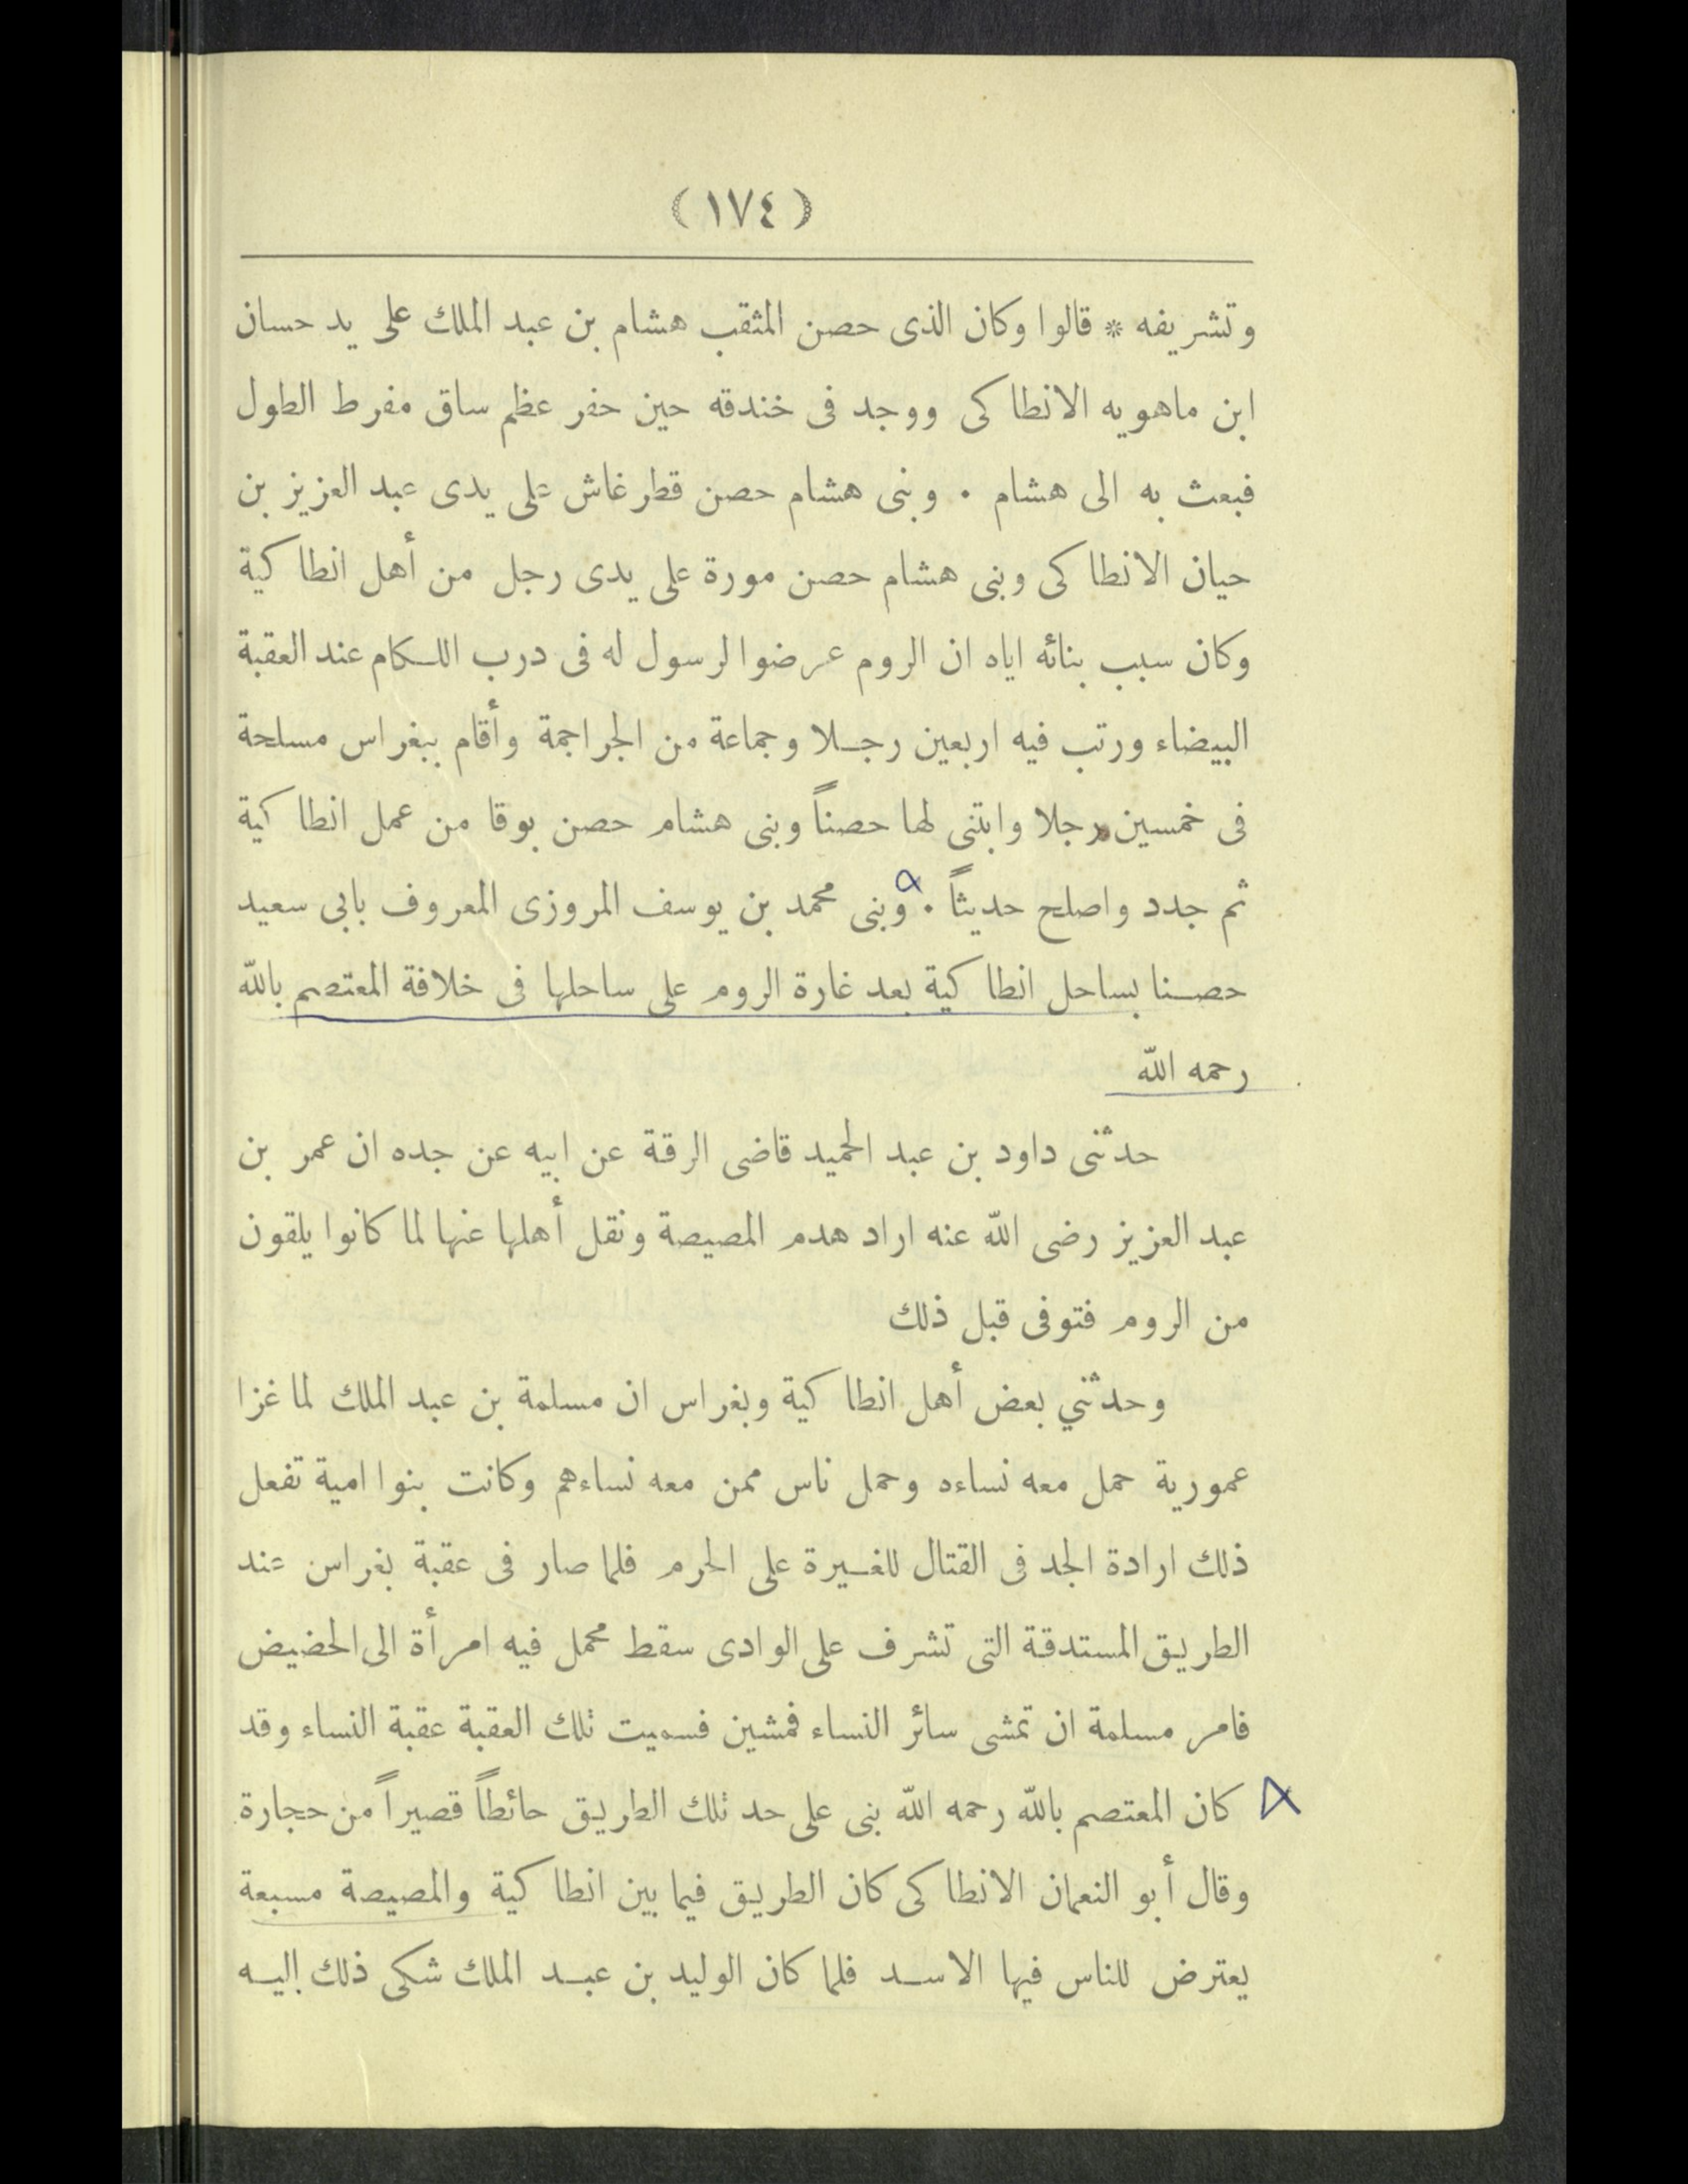 (١٧٤)
وتشريفه * قالوا وكان الذى حصن المثقب هشام بن عبد الملك على يد حسان
ابن ماهويه الانطاكى ووجد فى خندقه حين حفر عظم ساق مفرط الطول
فبعث به الى هشام . وبنى هشام حصن قطرغاش على يدى عبد العزيز بن
حيان الانطاكى وبنى هشام حصن مورة على يدى رجل من أهل انطاكية
وكان سبب بنائه اياه ان الروم عرضوا لرسول له فى درب اللكام عند العقبة
البيضاء ورتب فيه اربعين رجلا وجماعة من الجراجمة وأقام ببغراس مسلحة
فى خمسين رجلا وابتنى لها حصناً وبنى هشام حصن بوقا من عمل انطاكية
ثم جدد واصلح حديثاً . وبنى محمد بن يوسف المروزى المعروف بابى سعيد
حصنا بساحل انطاكية بعد غارة الروم على ساحلها فى خلافة المعتصم بالله
رحمه الله
حدثنى داود بن عبد الحميد قاضى الرقة عن ابيه عن جده ان عمر بن
عبد العزيز رضى الله عنه اراد هدم المصيصة ونقل أهلها عنها لما كانوا يلقون
من الروم فتوفى قبل ذلك
وحدثني بعض أهل انطاكية وبغراس ان مسلمة بن عبد الملك لما غزا
عمورية حمل معه نساءه وحمل ناس ممن معه نساءهم وكانت بنوا امية تفعل
ذلك ارادة الجد فى القتال للغيرة على الحرم فلما صار فى عقبة بغراس عند
الطريق المستدقة التى تشرف على الوادى سقط محمل فيه امرأة الى الحضيض
فامر مسلمة ان تمشى سائر النساء فمشين فسميت تلك العقبة عقبة النساء وقد
كان المعتصم بالله رحمه الله بنى على حد تلك الطريق حائطاً قصيراً من حجارة
وقال أبو النعمان الانطاكى كان الطريق فيما بين انطاكية والمصيصة مسبعة
يعترض للناس فيها الاسد فلما كان الوليد بن عبد الملك شكى ذلك إليه